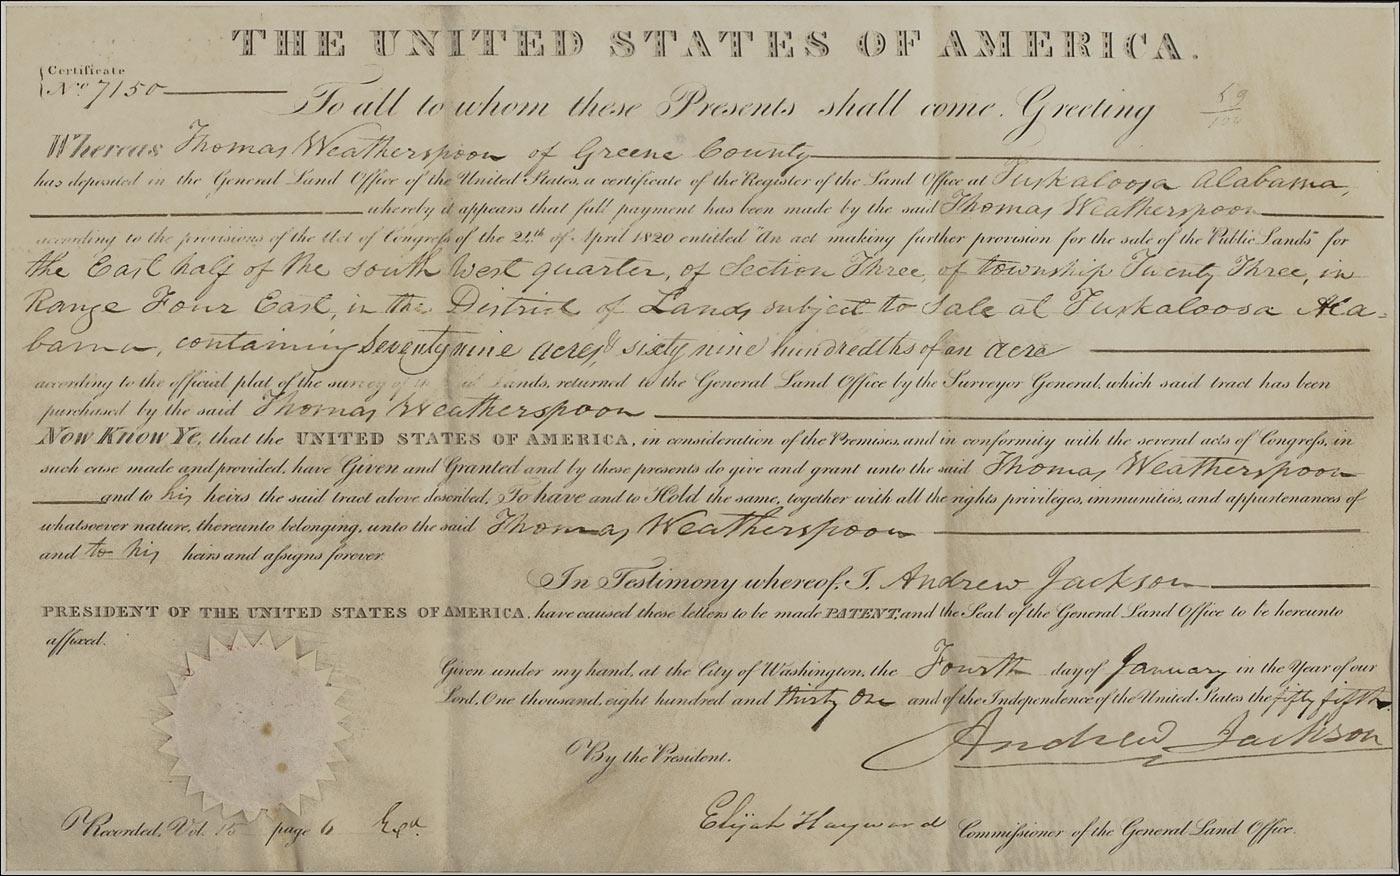 THE UNITED STATES OF AMERICA.
Certificate
No. 7150
To all to whom these Presents shall come, Greeting
59/100
Whereas Thomas Weatherspoon of Greene County
has deposited in the General Land Office of the United States, a certificate of the Register of the Land Office at Tuskaloosa Alabama,
whereby it appears that full payment has been made by the said Thomas Weatherspoon
according to the provisions of the Act of Congress of the 24th of April 1820 entitled "An act making further provision for the sale of the Public Lands" for
the East half of the South West quarter, of Section Three, of township Twenty Three, in
Range Four East, in the District of Lands subject to Sale at Tuskaloosa Ala-
bama, containing Seventy nine acres, & sixty nine hundredths of an acre
according to the official plat of the survey of the said Lands, returned to the General Land Office by the Surveyor General, which said tract has been
purchased by the said Thomas Weatherspoon
Now Know Ye, that the UNITED STATES OF AMERICA, in consideration of the Premises, and in conformity with the several acts of Congress, in
such case made and provided, have Given and Granted and by these presents do give and grant unto the said Thomas Weatherspoon
and to his heirs the said tract above described, To have and to Hold the same, together with all the rights privileges, immunities, and appurtenances of
whatsoever nature, thereunto belonging, unto the said Thomas Weatherspoon
and to his heirs and assigns forever.
In Testimony whereof, I, Andrew Jackson
PRESIDENT OF THE UNITED STATES OF AMERICA, have caused these letters to be made PATENT, and the Seal of the General Land Office to be hereunto
affixed.
Given under my hand, at the City of Washington, the Fourth day of January in the Year of our
Lord, One thousand, eight hundred and thirty One and of the Independence of the United States the fifty fifth.
Andrew Jackson
By the President.
Elijah Hayward Commissioner of the General Land Office.
Recorded, Vol. 15 page 6